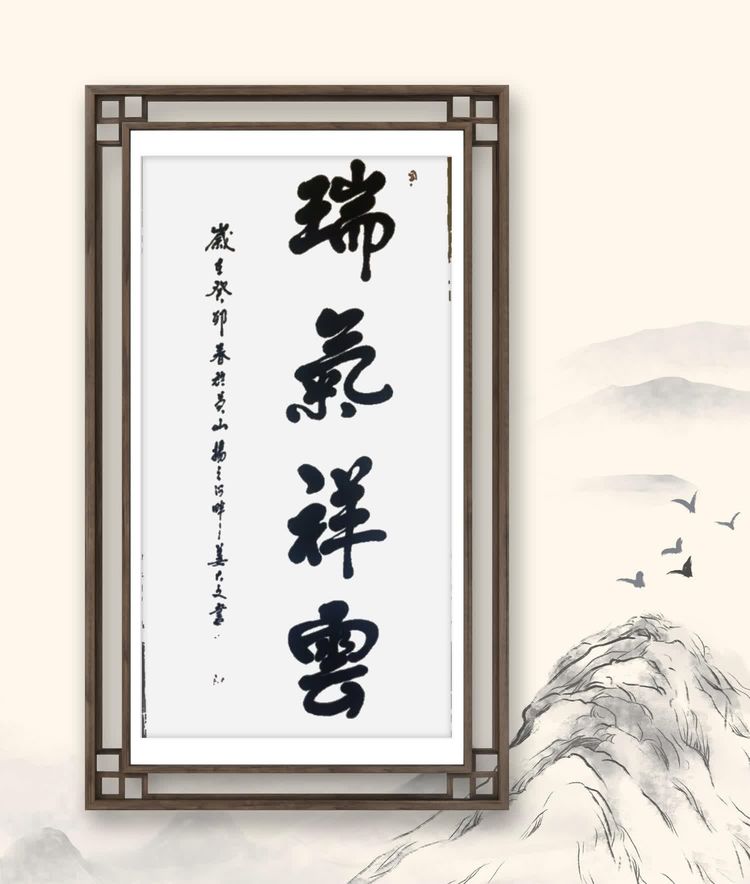 瑞氣祥雲
歲在癸卯春於黃山揚之河畔姜大文書